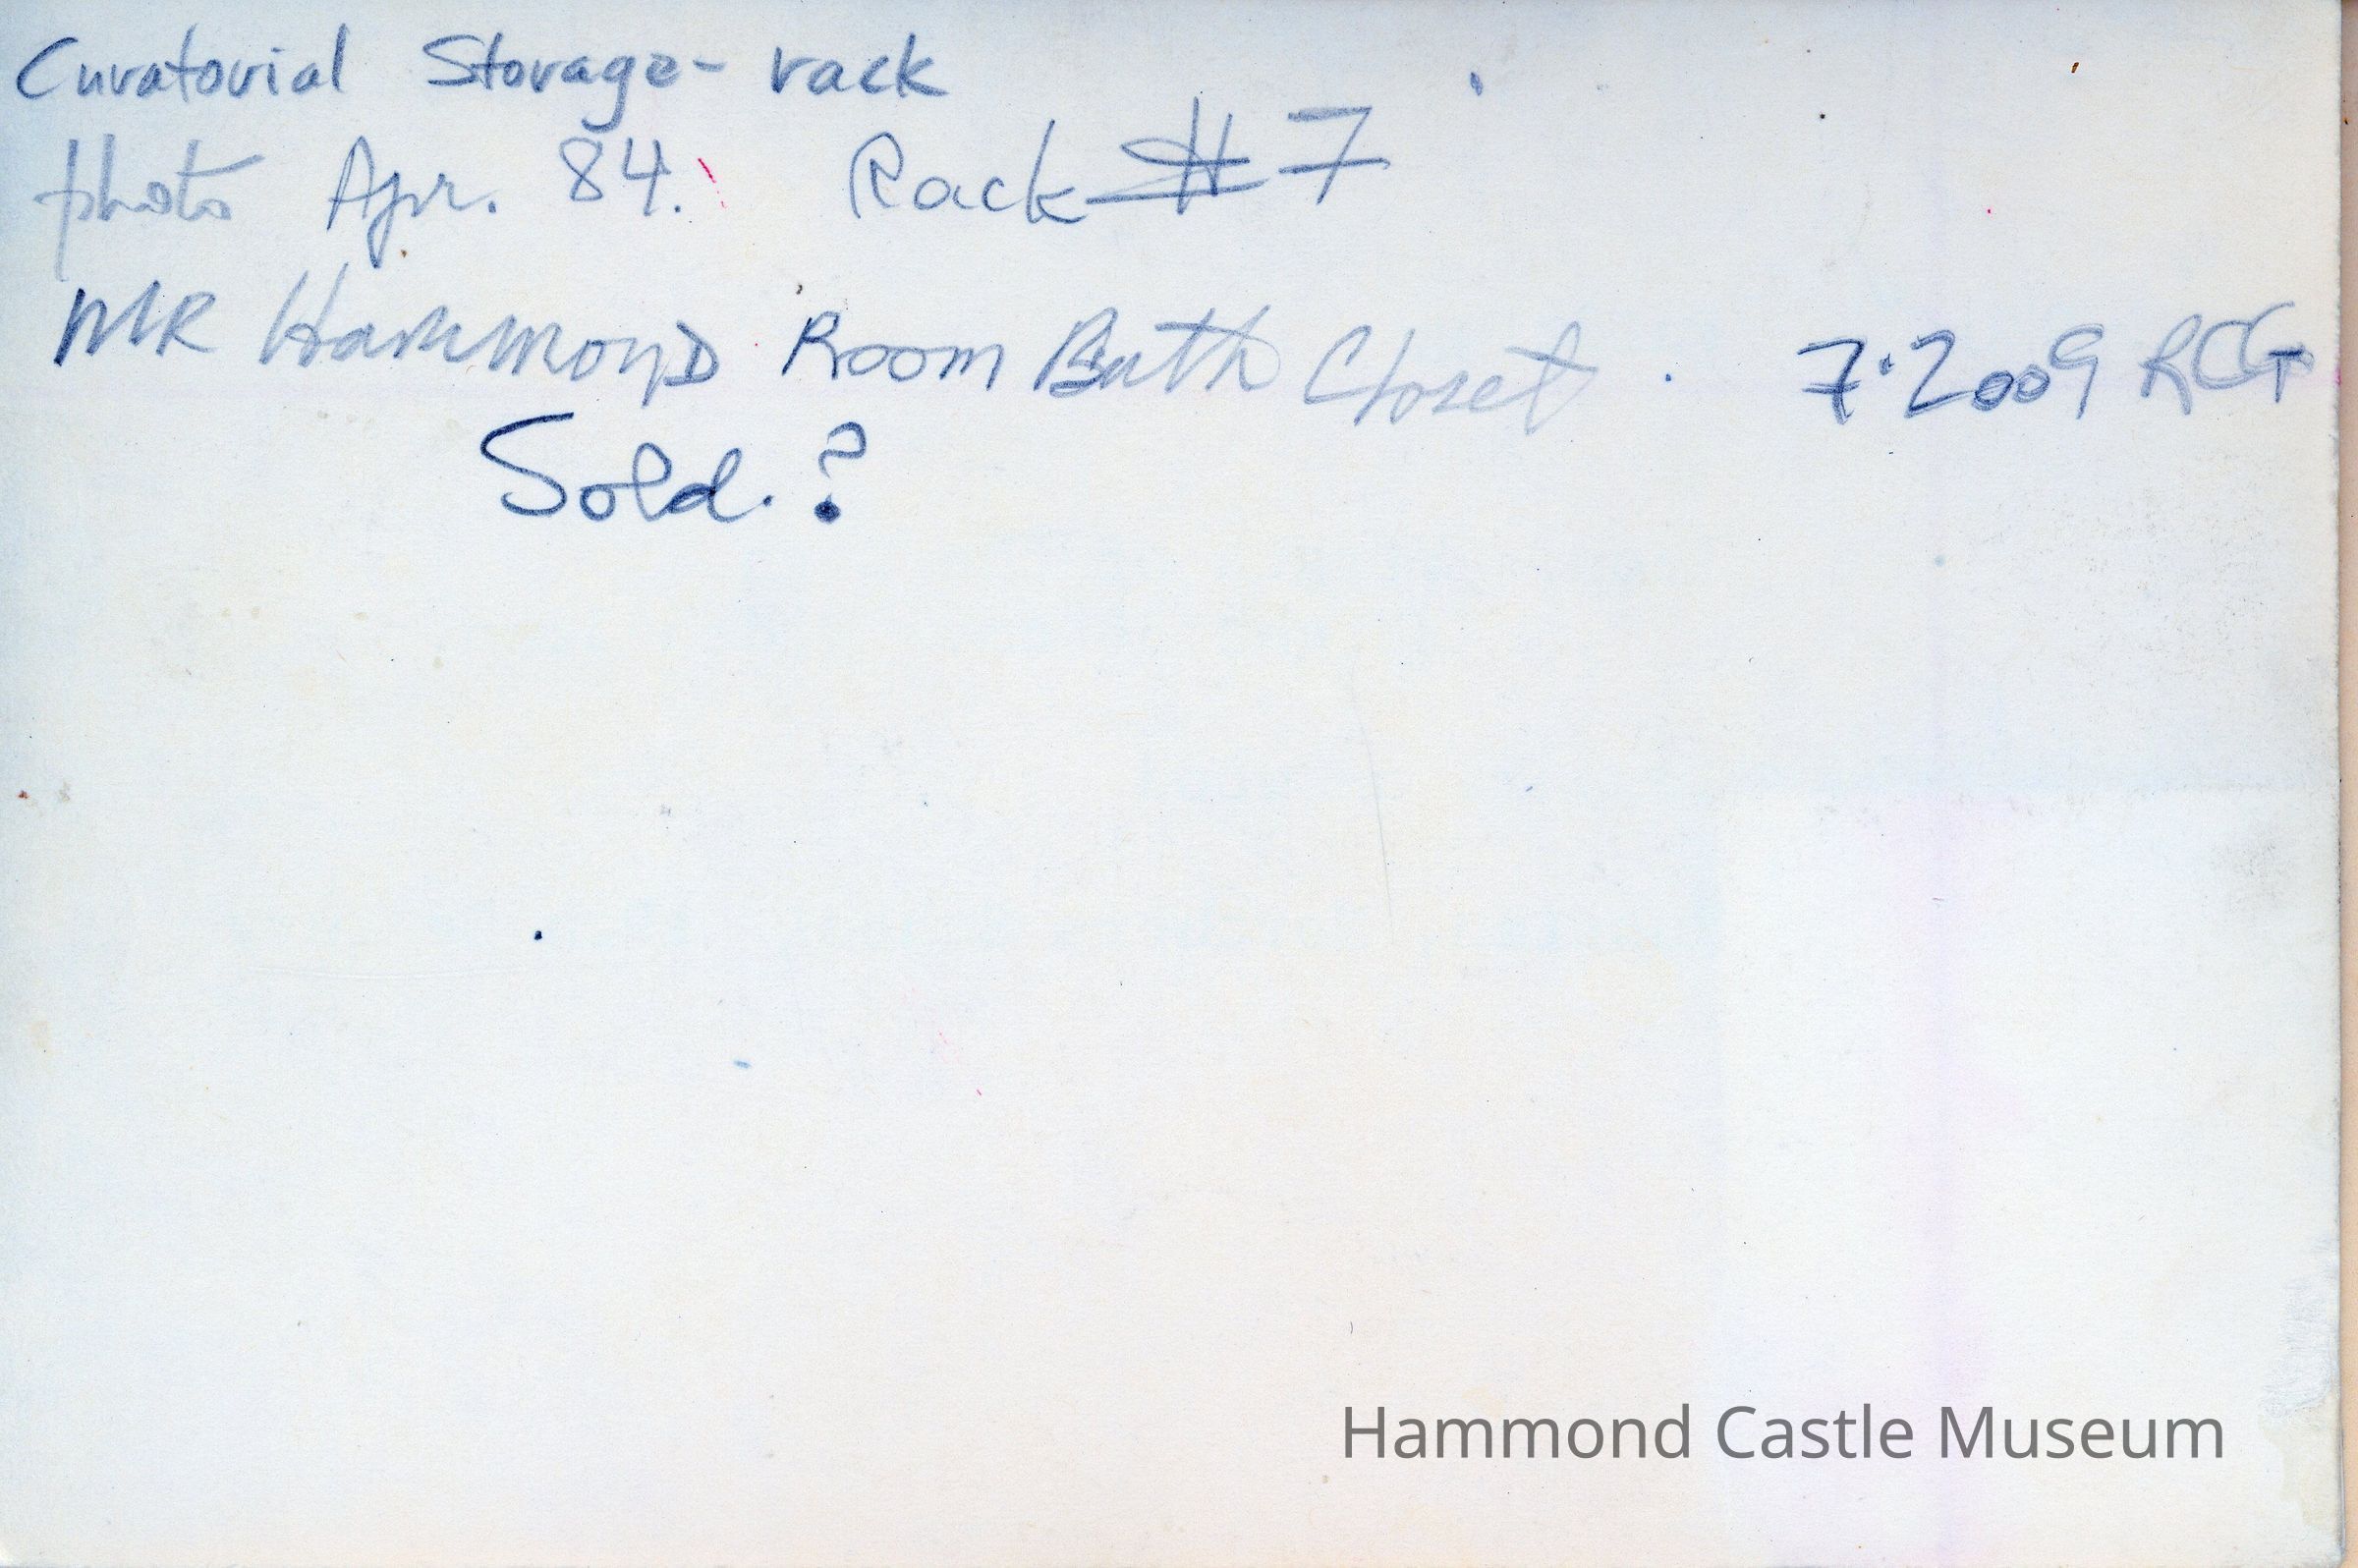 Curatorial Storage - rack
photo Apr. 84. Rack #7
MR Hammond Room Bath Closet . 7.2009 RCG
Sold. ?
Hammond Castle Museum